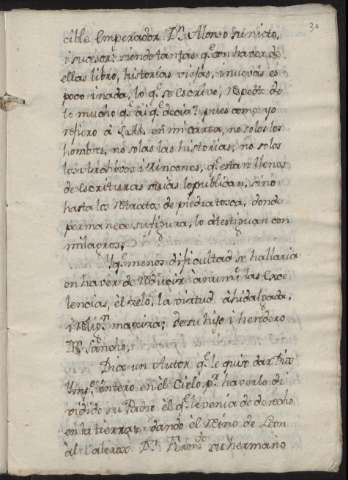 30
cible Emperador Dn. Alonso su nieto,
i sucesor; siendo tantas qe. con haver de
ellas libro, historias viejas, i nuevas es
poco i nada, lo qe. se escrive, respecto de
lo mucho qe. ai qe. decir; pues como yo
refiero à en mi carta, no solos los
hombres, no solas las historias, no solos
los Archivos i Rincones, qe. estan llenos
de escrituras suias lo publican, sino
hasta los Retratos de piedra tosca, donde
permanece su figura, lo atestiguan con
milagros.
I qe. menos dificultad se hallaria
en haver de las Exce
lencias, el zelo, la virtud
i maior de su hijo i heredero
Dn. Sancho,
Dice un Autor qe. le quiso dar Dios
entero en el Cielo, pr. haverle di
vidido su Padre el qe. le venia de derecho
en la tierra, dando el Reino de Leon
àl Dn. su hermano